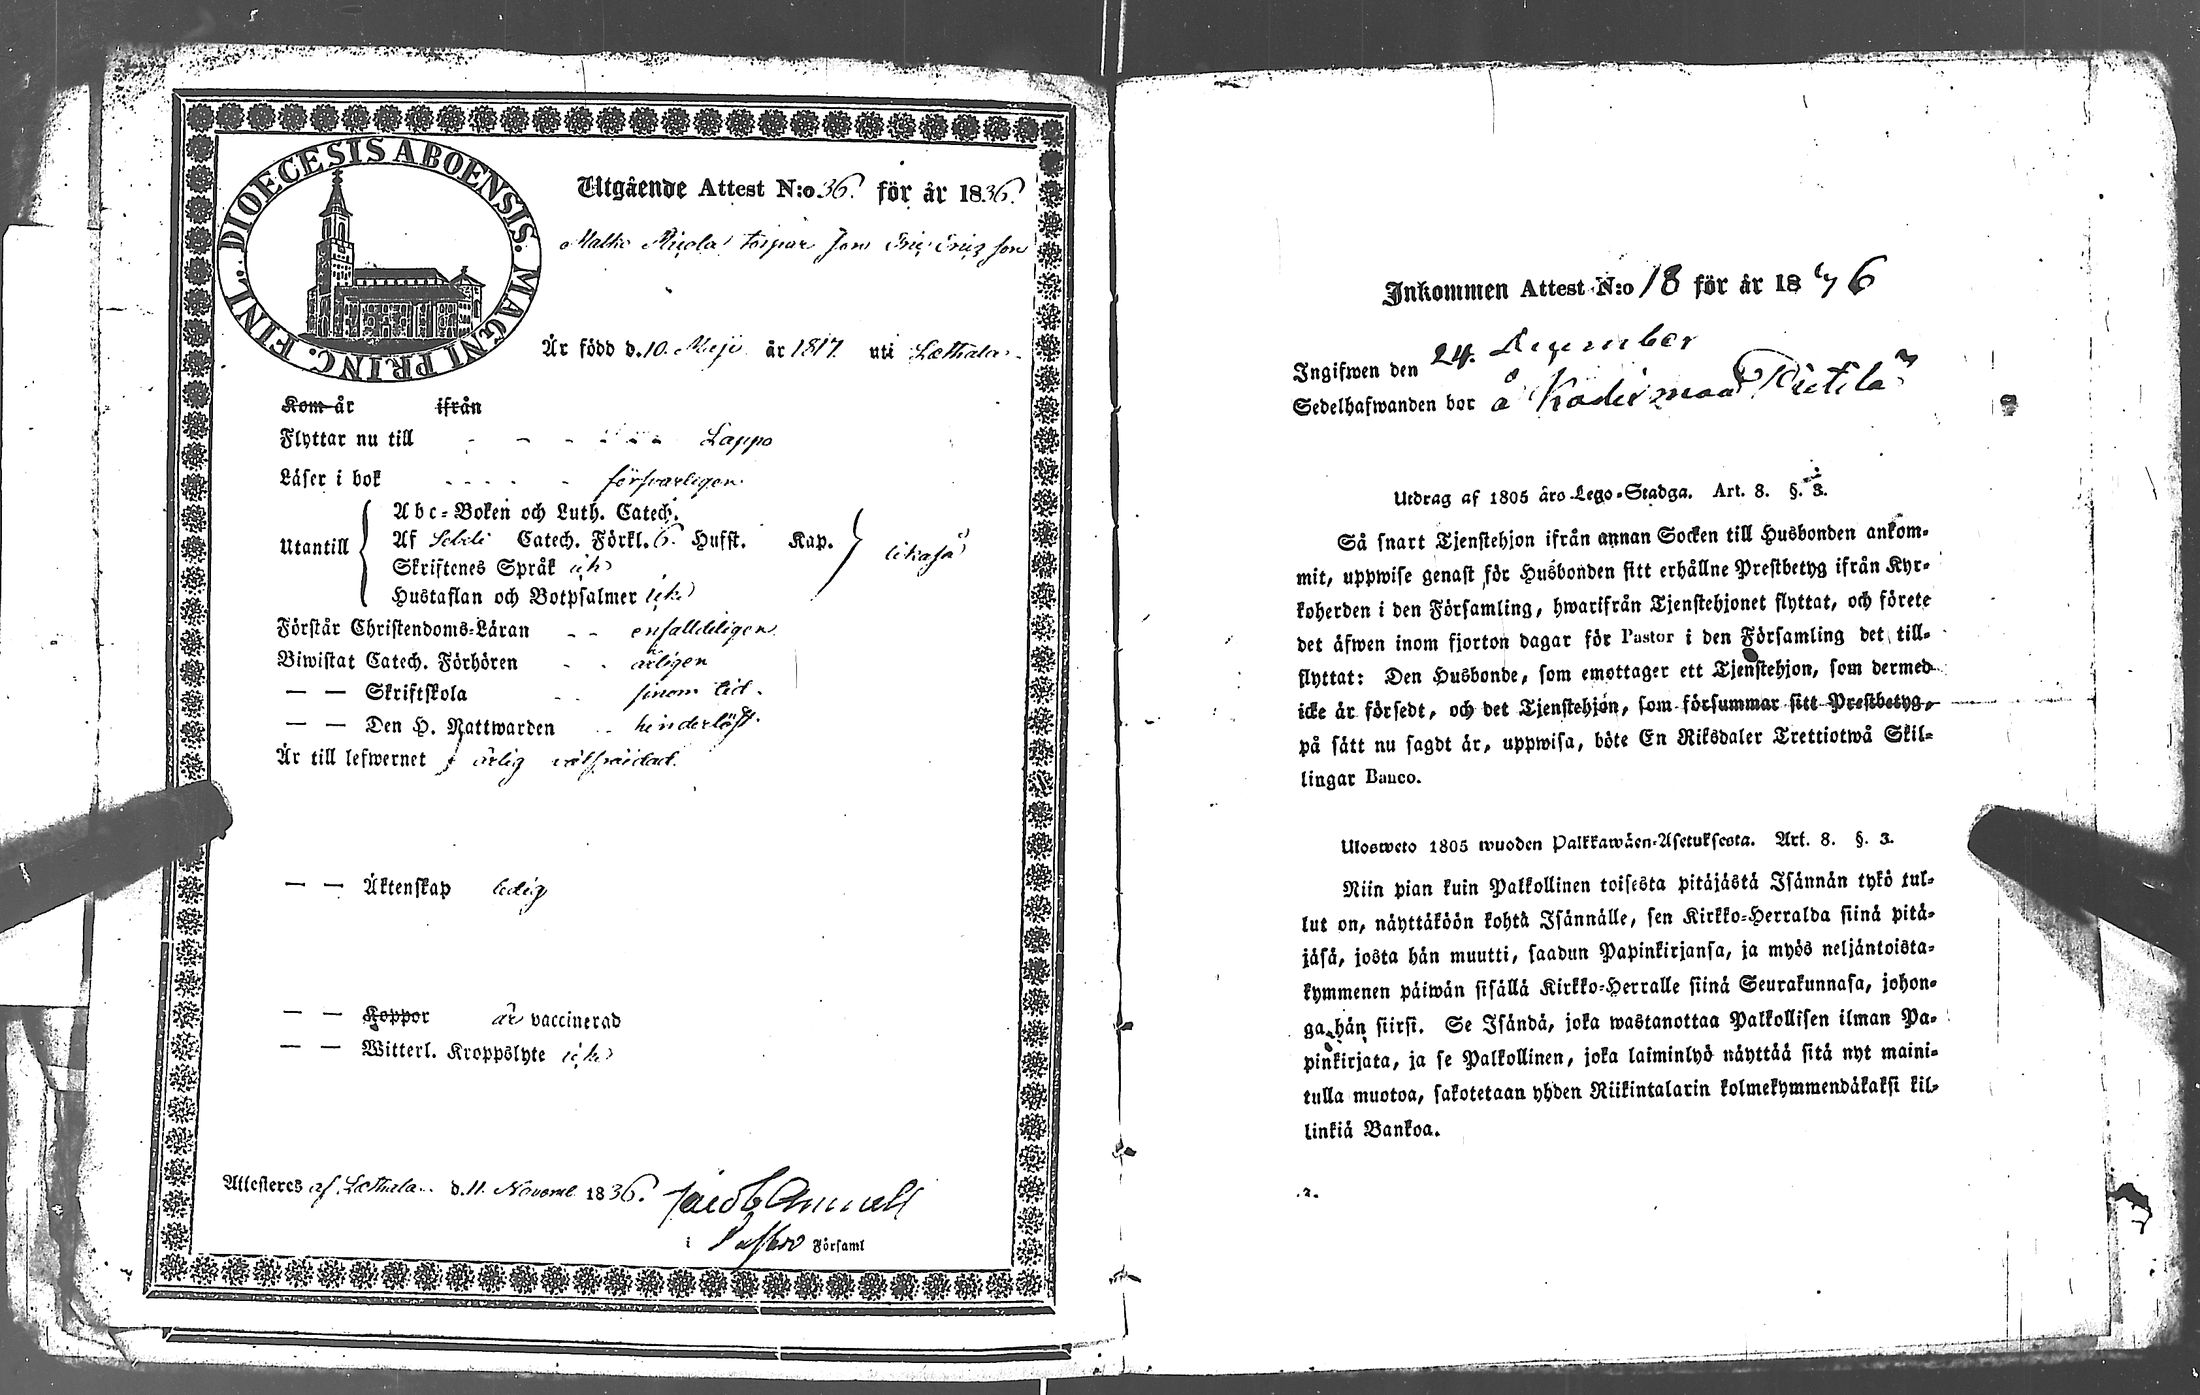 DIOECESIS ABOENSIS. MAGNI PRINC. FINL.
Utgående Attest N:o 36. för år 1836.
Är född d. 10. Maji år 1817. uti Lethala
Kom år ifrån
Flyttar nu till - - - - - - Lappo
Läser i bok - - - - - försvarligen
Utantill
Abc-Boken och Luth. Catech.
Af Sebeli Catech. Förkl. 6. Hufst. Kap.
likaså
Skriftenes Språk icke
Hustaflan och Botpsalmer icke
Förstår Christendoms-Läran - - enfalldeligen
Biwistat Catech. Förhören - - årligen
— — Skriftskola - - sinom tid.
— — Den H. Nattwarden - - hinderlöst.
Är till lefwernet ärlig välfräjdad.
— — Äktenskap ledig
— — Koppor är vaccinerad
— — Witterl. Kroppslyte icke
Attesteres af Lethala d. 11. Novemb. 1836.
Jacob
i Församl
Inkommen Attest N:o 18 för år 18
Ingifwen den 24. December
Sedelhafwanden bor å
Utdrag af 1805 års Lego-Stadga. Art. 8. §. 3.
Så snart Tjenstehjon ifrån annan Socken till Husbonden ankom-
mit, uppwise genast för Husbonden sitt erhållne Prestbetyg ifrån Kyr-
koherden i den Församling, hwarifrån Tjenstehjonet flyttat, och förete
det äfwen inom fjorton dagar för Pastor i den Församling det till-
flyttat: Den Husbonde, som emottager ett Tjenstehjon, som dermed
icke är försedt, och det Tjenstehjon, som försummar sitt Prestbetyg,
på sätt nu sagdt är, uppwisa, böte En Riksdaler Trettiotwå Skil-
lingar Banco.
Ulosweto 1805 wuoden Palkkawäen-Asetuksesta. Art. 8. §. 3.
Niin pian kuin Palkollinen toisesta pitäjästä Isännän tykö tul-
lut on, näyttäköön kohta Isännälle, sen Kirkko-Herralda siinä pitä-
jäsä, josta hän muutti, saadun Papinkirjansa, ja myös neljäntoista-
kymmenen päiwän sisällä Kirkko-Herralle siinä Seurakunnasa, johon-
ga hän siirsi. Se Isändä, joka wastanottaa Palkollisen ilman Pa-
pinkirjata, ja se Palkollinen, joka laiminlyö näyttää sitä nyt maini-
tulla muotoa, sakotetaan yhden Riikintalarin kolmekymmendäkaksi kil-
linkiä Bankoa.